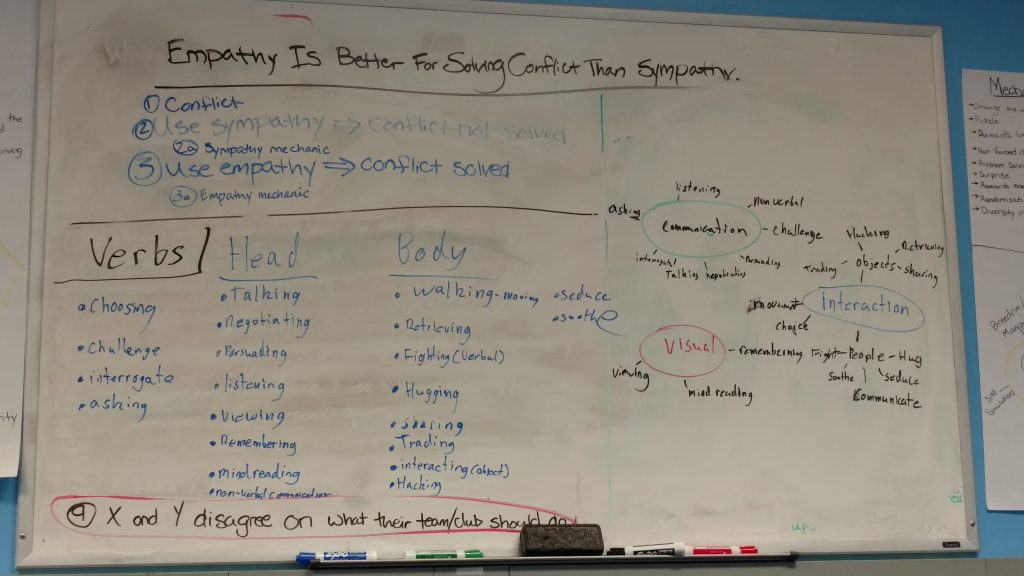 Empathy Is Better For Solving Conflict Than Sympathy.
① Conflict
② Use sympathy ⇒ Conflict not solved
2a Sympathy mechanic
③ Use empathy ⇒ Conflict solved
3a Empathy mechanic
Verbs
• Choosing
• Challenge
• interrogate
• asking
Head
• Talking
• Negotiating
• Persuading
• listening
• Viewing
• Remembering
• mindreading
• non-verbal communication
Body
• Walking - moving
• Retrieving
• Fighting (verbal)
• Hugging
• Sharing
• Trading
• interacting (object)
• Hacking
• seduce
• soothe
④ X and Y disagree on what their team/club should do
listening
asking
nonverbal
Communication - challenge
interrogate
Talking
negotiating
Persuading
Visual - remembering
viewing
mind reading
Hacking
Retrieving
Trading
objects - sharing
movement
interaction
choice
Fight - People - Hug
Soothe
seduce
Communicate
ups
EXPO
the
iving
ity
Mecha
→ Change the
→ Puzzle
→ Rewards
→ Non forced
→ Problem Solvi
→ Surprise
→ Rewards and
→ Randomizati
→ Diversity in
Breeding
SIM
Simulations